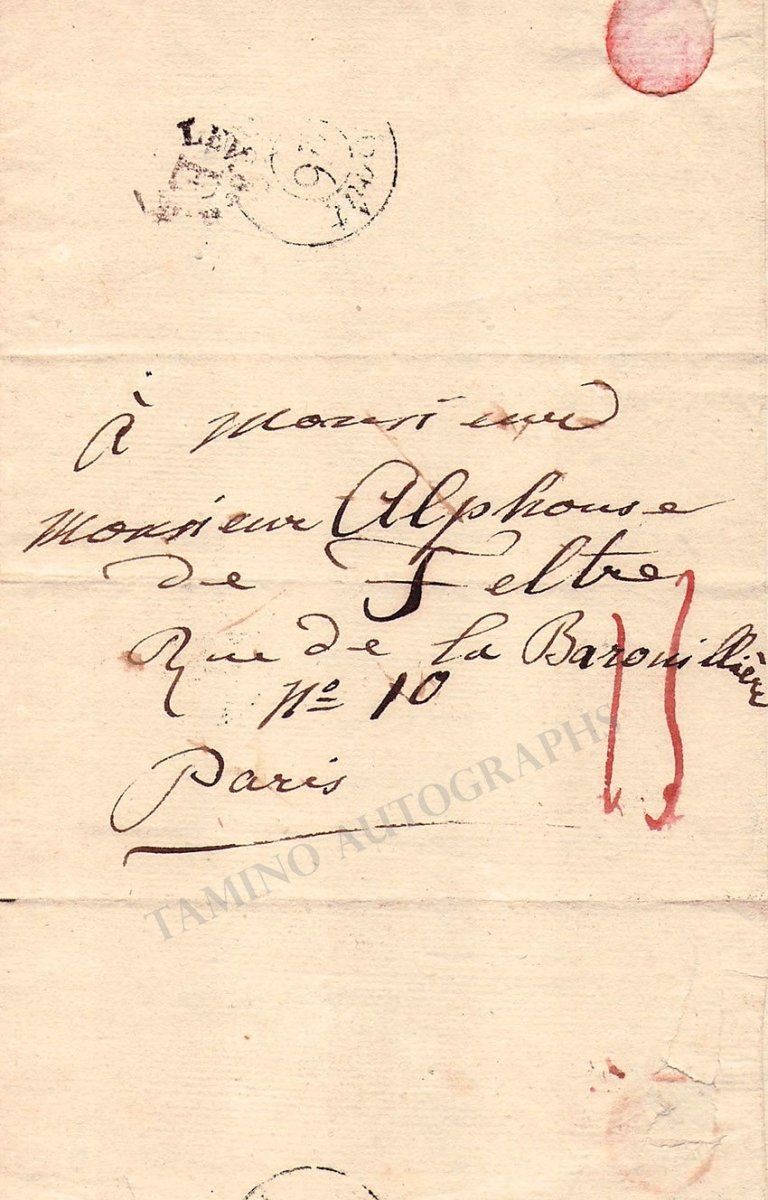 LEV
E
6
À Monsieur
Monsieur Alphonse
de Feltre
Rue de la Barouillière
no 10
Paris
TAMINO AUTOGRAPHS